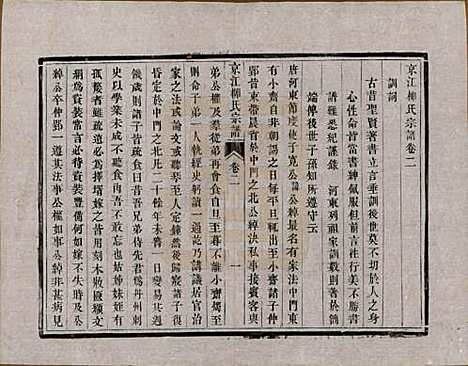 京江柳氏宗譜卷二
訓詞
古昔聖賢著書立言垂訓後世莫不切於人之身
心性命皆當書紳佩服但前言往行美不勝書
難以悉紀謹錄 河東列祖家訓數則著於簡
端俾後世子孫知所遵守云
唐河東節度使子寬公綽最名有家法中門東
有小齋自非朝謁之日每平旦輒出至小齋諸子仲
郢皆束帶晨省於中門之北公綽決私事接賓客與
京江柳氏宗譜
卷二
一
弟公權及群從弟再會食自旦至暮不離小齋燭至
則命子弟一人執經史躬讀一過訖乃講議居官治
家之法或論文或聽琴至人定鐘然後歸寢諸子復
昏定於中門之北凡二十餘年未嘗一日變易其
史以學業未成不聽食肉吾兄弟侍先君為丹州刺
孤甍者雖疏遠必為擇壻嫁之皆用刻木妝奩纈文
絹為資裝常言必待資裝豐備何如嫁不失時及公
綽公卒仲郢一遵其法事公權如事公綽非甚病見